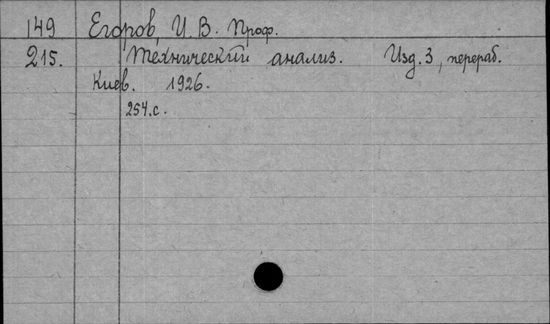 149 Егоров, И. В. Проф.
215. Технический анализ. Изд. 3, перераб.
Киев. 1926.
254.с.